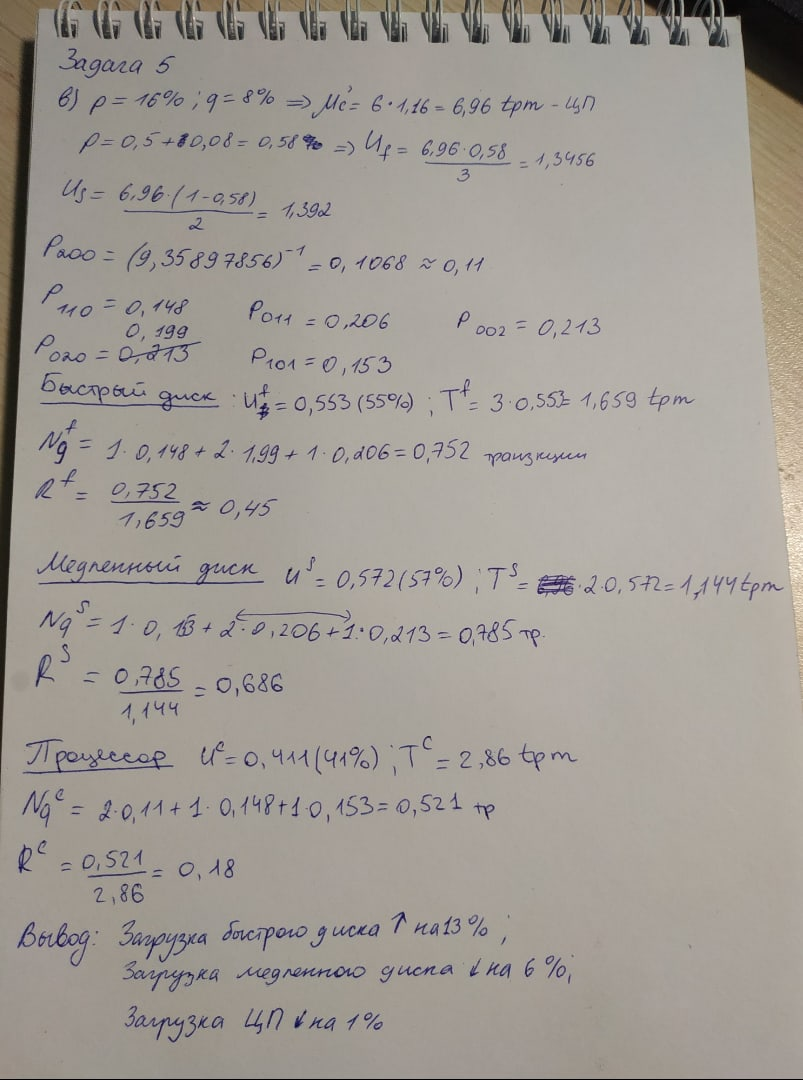 Задача 5
в) p = 16% ; q = 8% => Mc' = 6 · 1,16 = 6,96 tpm - ЦП
p = 0,5 + 0,08 = 0,58 => Uf = 6,96 · 0,58 / 3 = 1,3456
Us = 6,96 · (1 - 0,58) / 2 = 1,392
P200 = (9,35897856)⁻¹ = 0,1068 ≈ 0,11
P110 = 0,148 P011 = 0,206 P002 = 0,213
0,199
P020 = 0,213 P101 = 0,153
Быстрый диск : U^f = 0,553 (55%) ; T^f = 3 · 0,553 = 1,659 tpm
Nq^f = 1 · 0,148 + 2 · 1,99 + 1 · 0,206 = 0,752 транзкции
R^f = 0,752 / 1,659 ≈ 0,45
Медленный диск U^s = 0,572 (57%) ; T^s = · 2 · 0,572 = 1,144 tpm
Nq^s = 1 · 0,153 + 2 · 0,206 + 1 · 0,213 = 0,785 тр.
R^s = 0,785 / 1,144 = 0,686
Процессор U^c = 0,411 (41%) ; T^c = 2,86 tpm
Nq^c = 2 · 0,11 + 1 · 0,148 + 1 · 0,153 = 0,521 тр
R^c = 0,521 / 2,86 = 0,18
Вывод: Загрузка быстрого диска ↑ на 13% ;
Загрузка медленного диска ↓ на 6 %;
Загрузка ЦП ↓ на 1%